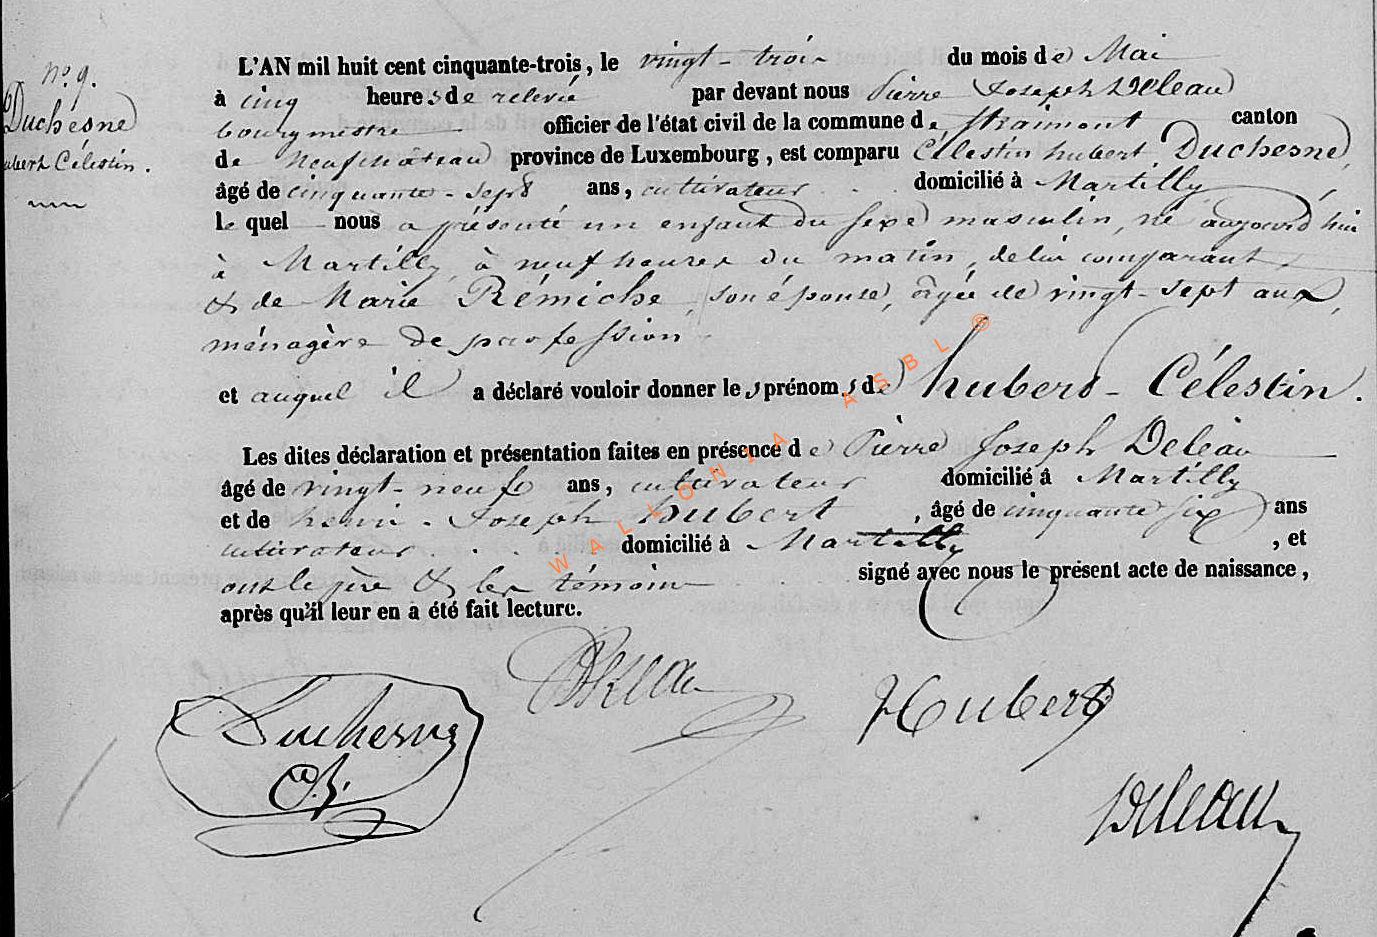 n.º 9.
Duchesne
hubert Célestin.
L'AN mil huit cent cinquante-trois, le vingt-trois du mois de Mai
à cinq heures de relevée par devant nous Pierre Joseph Deleau
bourgmestre officier de l'état civil de la commune de Straimont canton
de Neufchateau province de Luxembourg, est comparu Célestin hubert Duchesne,
âgé de cinquante-sept ans, cultivateur domicilié à Martilly
le quel nous a présenté un enfant du sexe masculin, né aujourd'hui
à Martilly, à neuf heures du matin, de lui comparant
& de Marie Rémiche, son épouse, âgée de vingt-sept ans,
ménagère de profession
et auquel il a déclaré vouloir donner les prénoms de hubert-Célestin.
Les dites déclaration et présentation faites en présence de Pierre Joseph Deleau
âgé de vingt-neuf ans, cultivateur domicilié à Martilly
et de henri-Joseph Hubert, âgé de cinquante six ans
cultivateur domicilié à Martilly, et
ont le père & les témoins signé avec nous le présent acte de naissance,
après qu'il leur en a été fait lecture.
WALLONIA ASBL ®
Deleau
Duchesne
Hubert
Deleau